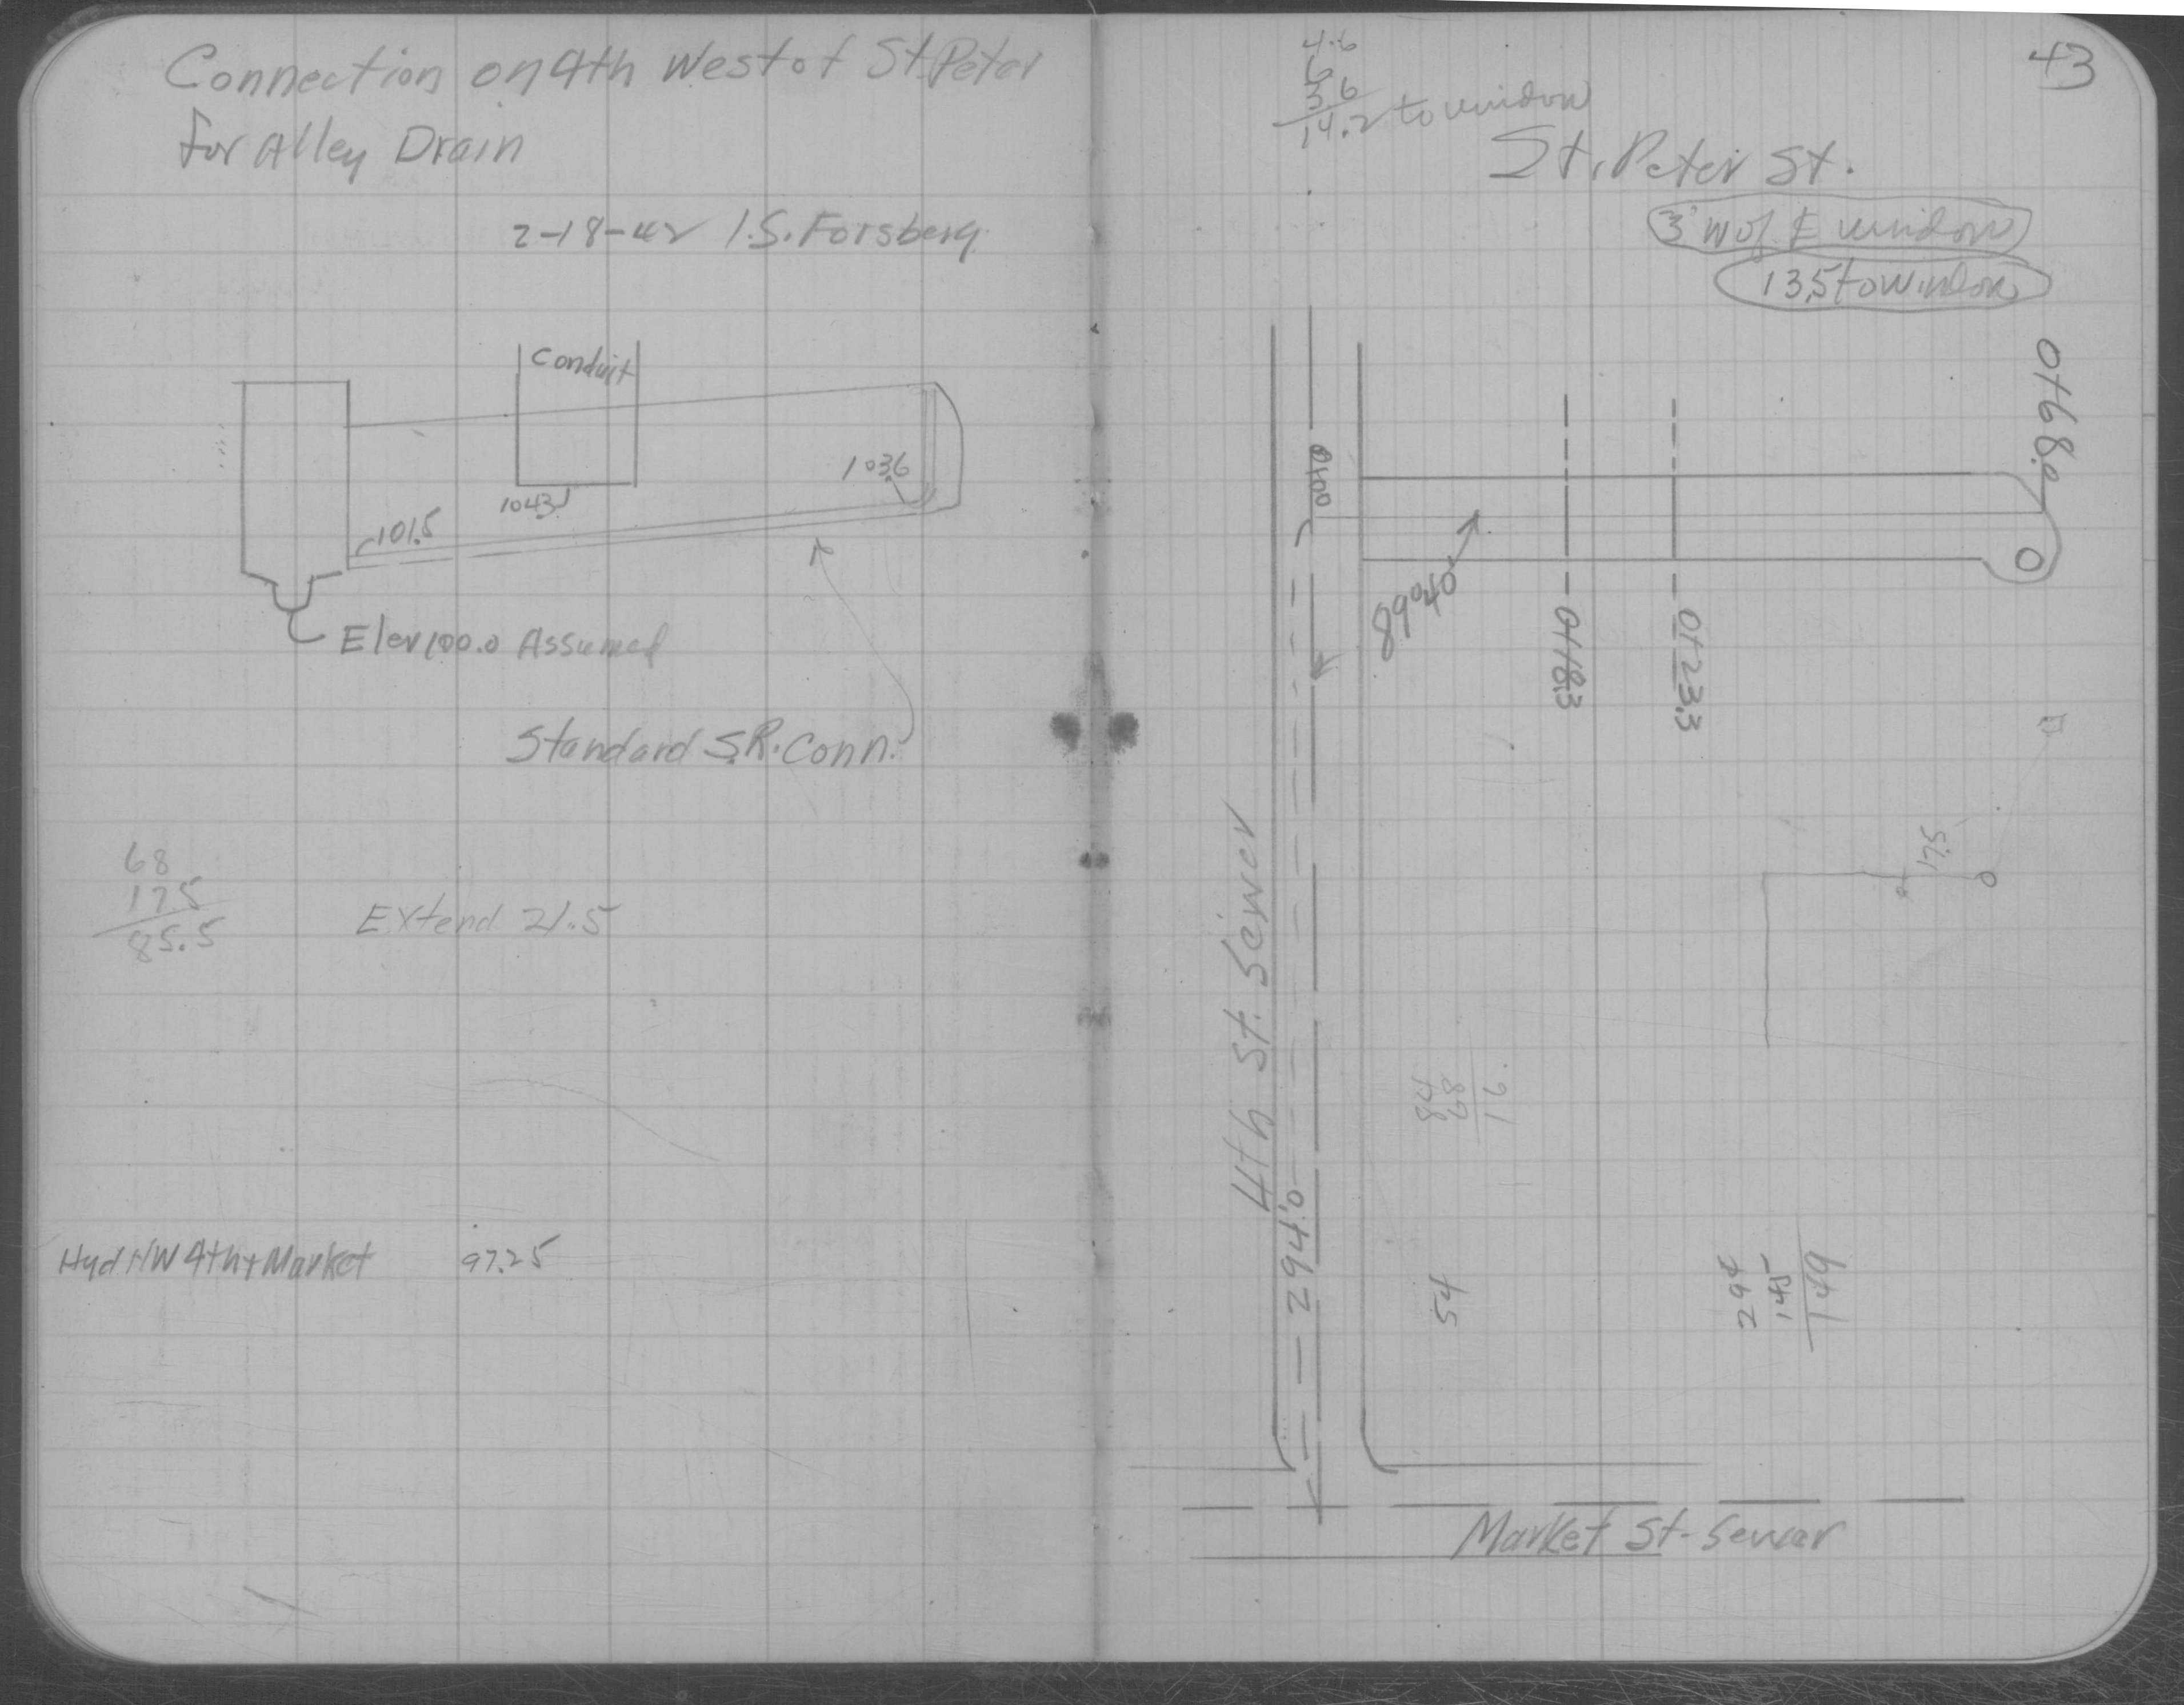 Connection on 4th West of St. Peter
for Alley Drain
2-18-42 I.S. Forsberg
Conduit
103.6
104.3
101.5
Elev 100.0 Assumed
Standard S.R. Conn.
68
175
85.5
Extend 21.5
Hyd NW 4th + Market 97.25
43
4.6
6
3.6
14.2 to window
St. Peter St.
3' W of E window
13.5 to window
0+68.0
0+00
89°40'
0+18.3
0+23.3
17.5
4th St. Sewer
84
68
16
294.0
54
294
145
149
Market St. Sewer